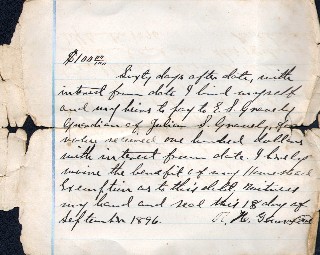 $100.00
Sixty days after date, with
interest from date I bind myself
and my heirs to pay to E. S. Gravely
Guardian of Julian S. Gravely, for
value received one hundred dollars
with interest from date. I hereby
waive the benefit of my Homestead
Exemption as to this debt. Witness
my hand and seal this 18 day of
September 1896. R. H.